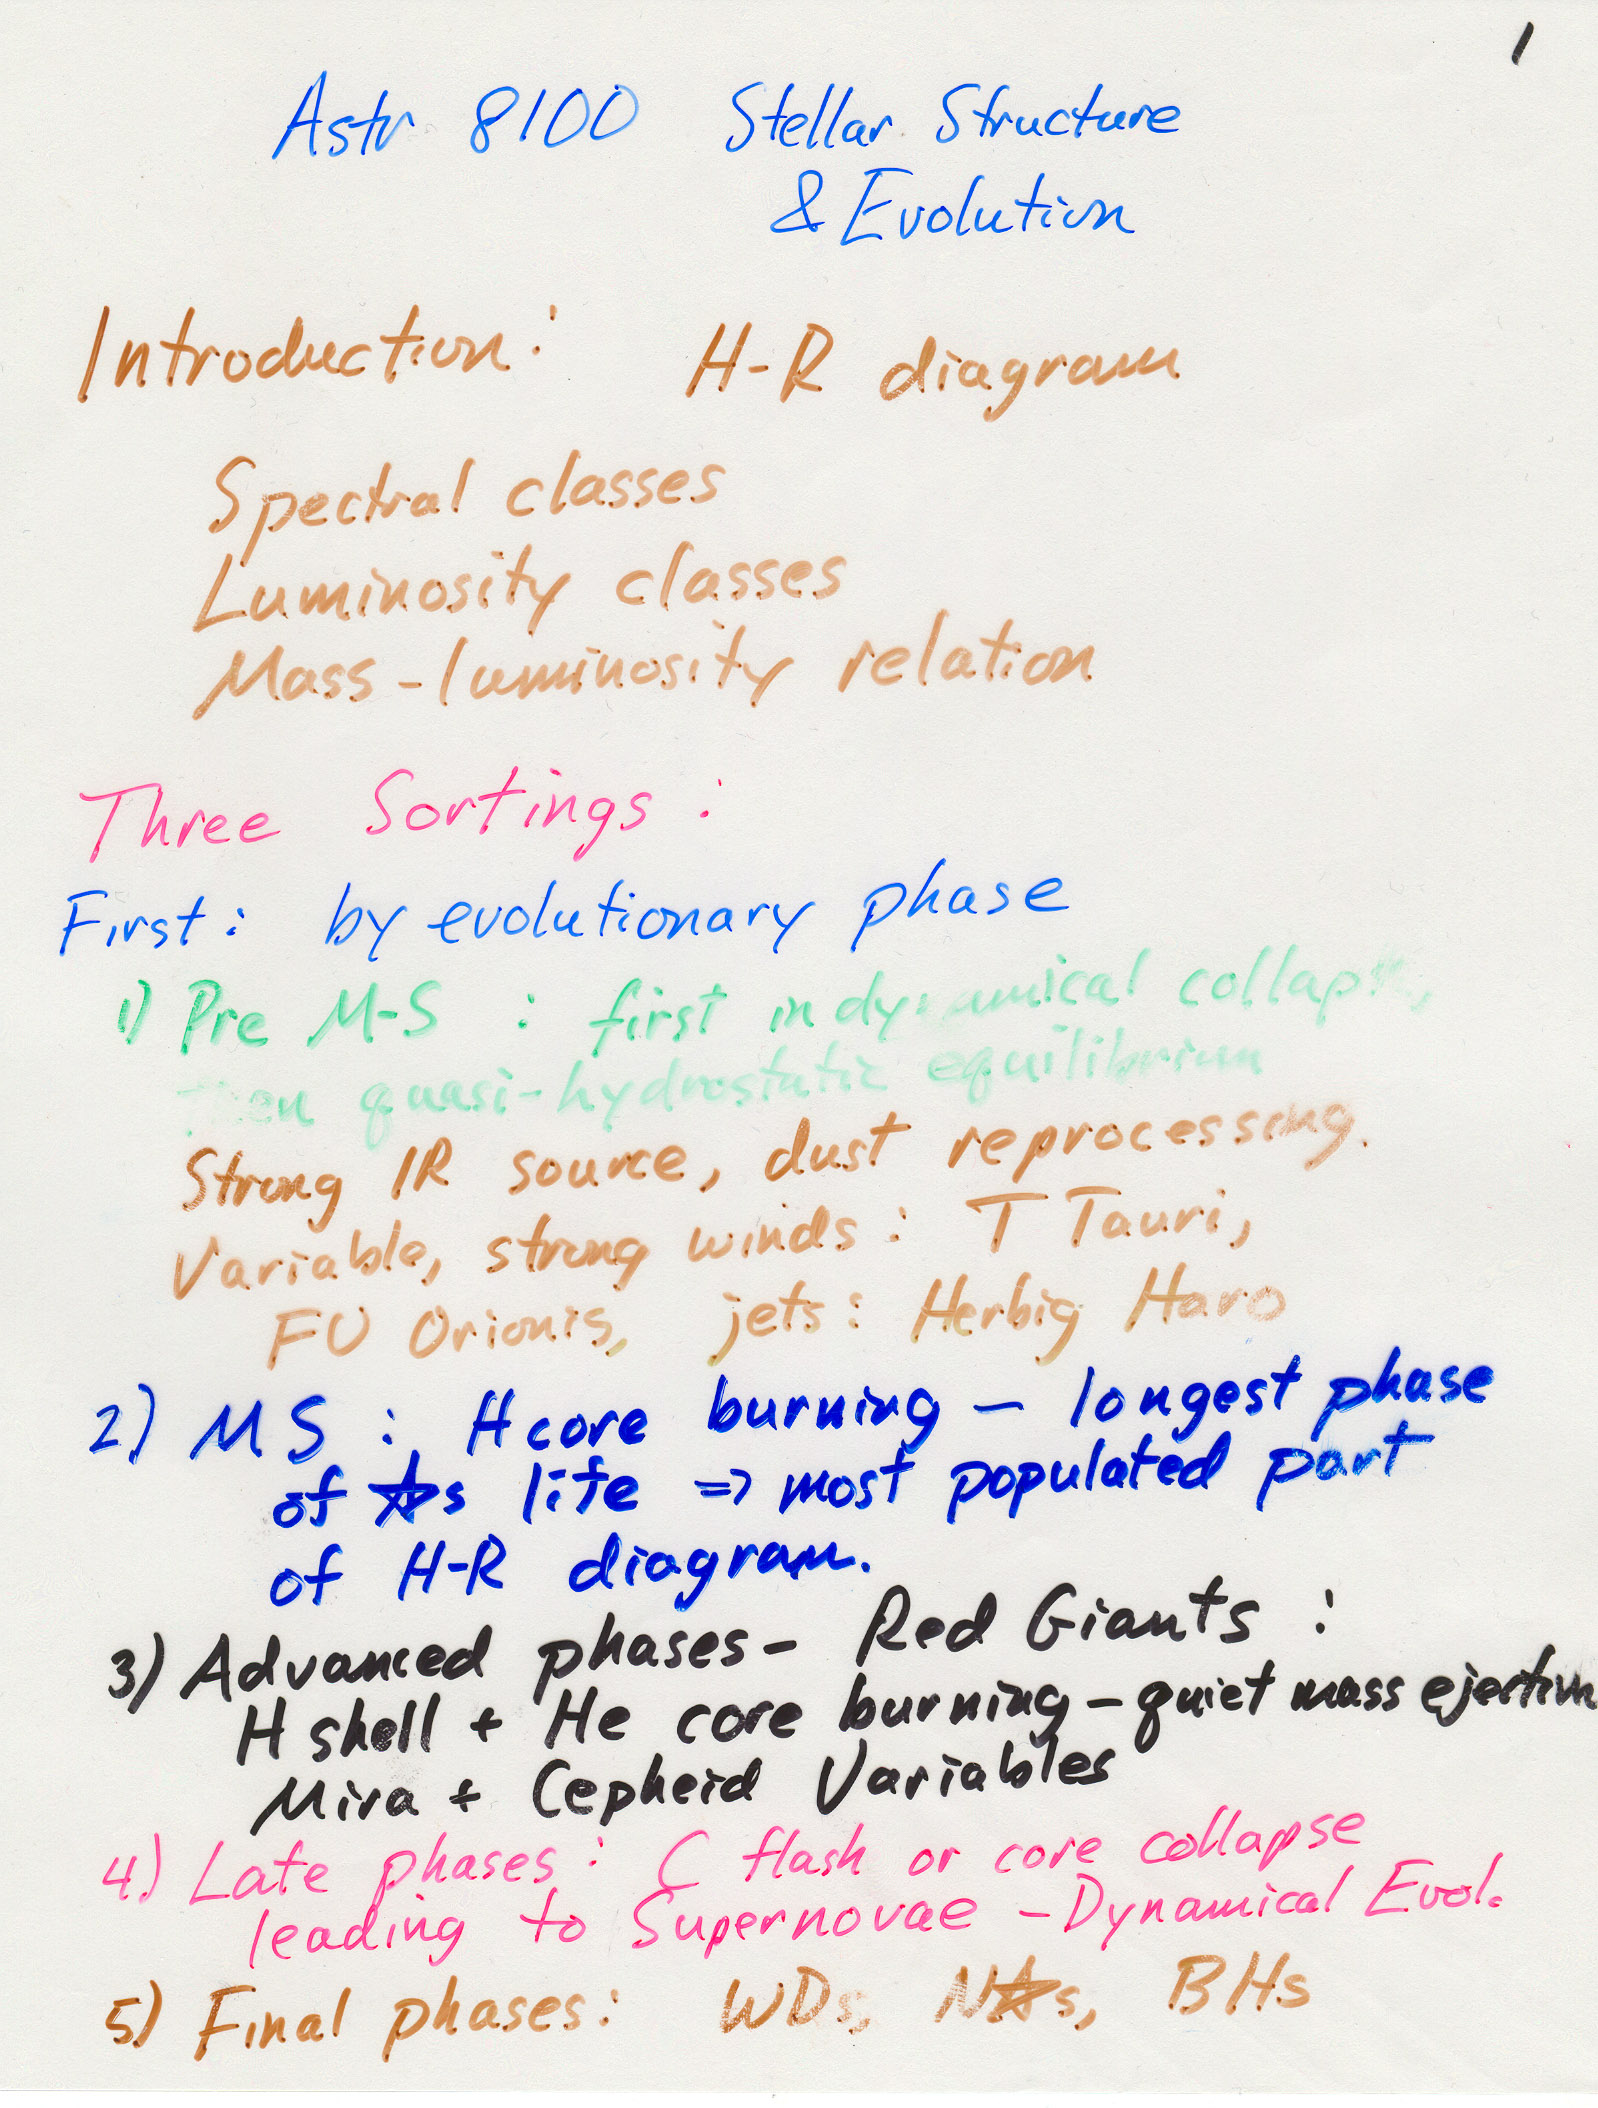 1
Astr 8100 Stellar Structure
& Evolution
Introduction: H-R diagram
Spectral classes
Luminosity classes
Mass-luminosity relation
Three Sortings:
First: by evolutionary phase
1) Pre M-S : first in dynamical collapse,
then quasi-hydrostatic equilibrium
Strong IR source, dust reprocessing.
Variable, strong winds: T Tauri,
FU Orionis, jets: Herbig Haro
2) MS : H core burning – longest phase
of ☆s life => most populated part
of H-R diagram.
3) Advanced phases – Red Giants :
H shell + He core burning – quiet mass ejection
Mira + Cepheid Variables
4) Late phases: C flash or core collapse
leading to Supernovae – Dynamical Evol.
5) Final phases: WDs, N☆s, BHs